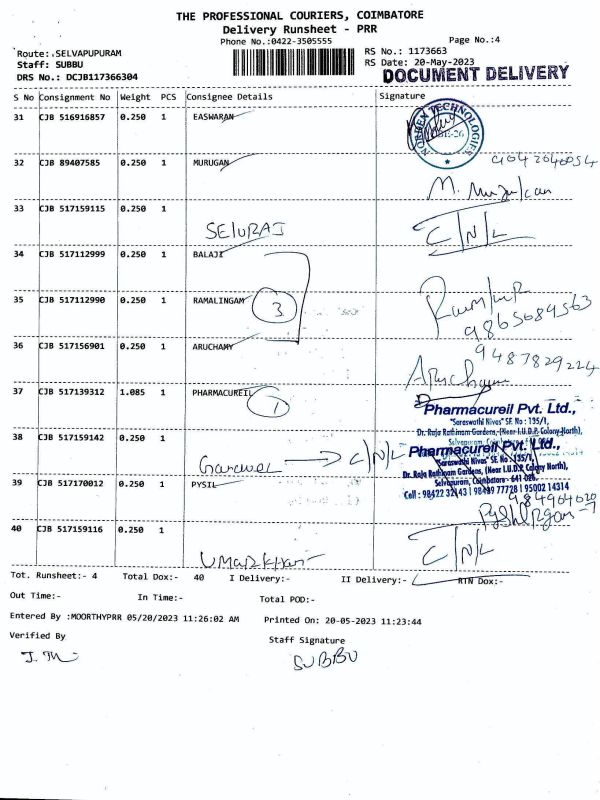 THE PROFESSIONAL COURIERS, COIMBATORE
Delivery Runsheet - PRR
Phone No.:0422-3505555
Page No.:4
Route:.SELVAPUPURAM
RS No.: 1173663
Staff: SUBBU
RS Date: 20-May-2023
DRS No.: DCJB117366304
DOCUMENT DELIVERY
S No Consignment No Weight PCS Consignee Details Signature
31 CJB 516916857 0.250 1 EASWARAN
NORDEN TECHNOLOGIES
32 CJB 89407585 0.250 1 MURUGAN
9042040054
M. Murugan
33 CJB 517159115 0.250 1
SELURAJ C/N/L
34 CJB 517112999 0.250 1 BALAJI
35 CJB 517112990 0.250 1 RAMALINGAM 3
9865689563
36 CJB 517156901 0.250 1 ARUCHAMY
9487829224
Aruchamy
37 CJB 517139312 1.085 1 PHARMACUREIL 1
Pharmacureil Pvt. Ltd.,
"Saraswathi Nivas" SF. No : 135/1,
Dr. Raja Rathinam Gardens, (Near I.U.D.P. Colony North),
38 CJB 517159142 0.250 1
C/N/L
Pharmacureil Pvt. Ltd.,
"Saraswathi Nivas" SF. No : 135/1,
Dr. Raja Rathinam Gardens, (Near I.U.D.P. Colony North),
Selvapuram, Coimbatore - 641 026.
Cell : 98422 32143 | 98439 77728 | 95002 14314
39 CJB 517170012 0.250 1 PYSIL
40 CJB 517159116 0.250 1
UMARKHAN C/N/L
Tot. Runsheet:- 4 Total Dox:- 40 I Delivery:- II Delivery:- RTN Dox:-
Out Time:- In Time:- Total POD:-
Entered By :MOORTHYPRR 05/20/2023 11:26:02 AM Printed On: 20-05-2023 11:23:44
Verified By Staff Signature
SUBBU